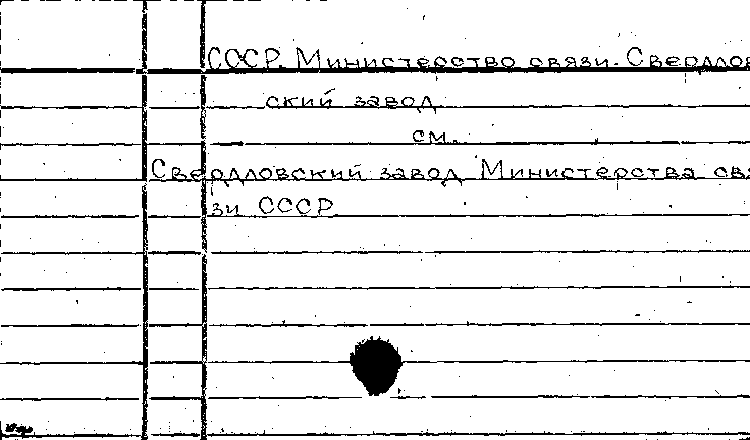 СССР. Министерство связи. Свердлов
ский завод
см.
Свердловский завод Министерства свя
зи СССР